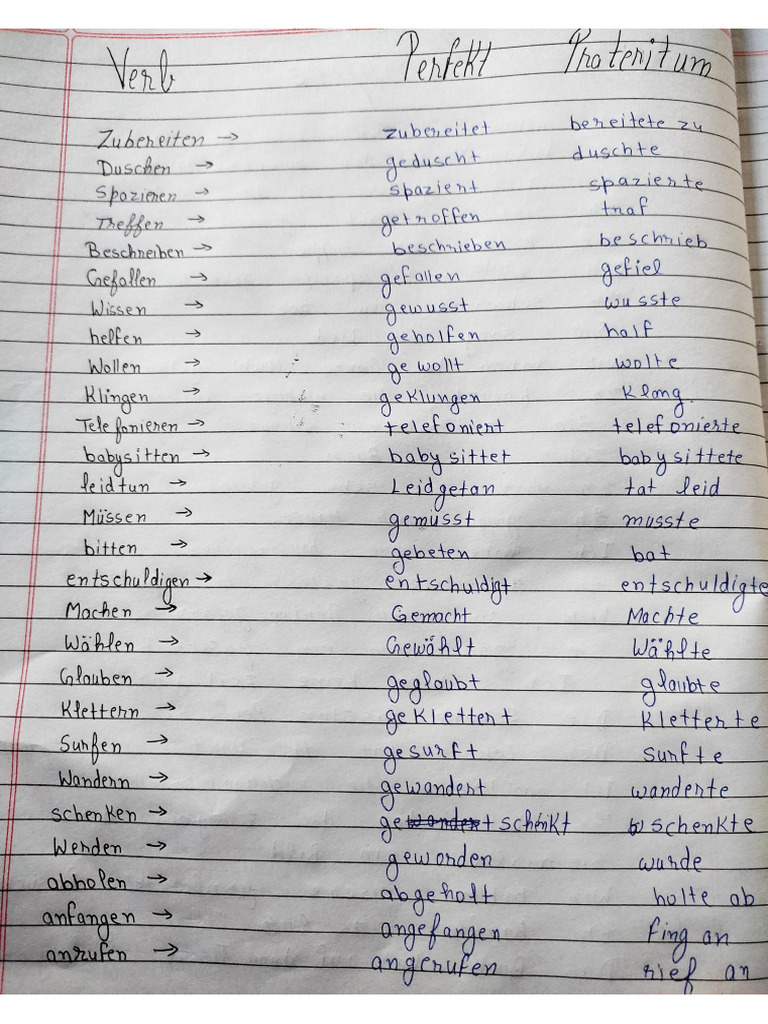 Verb Perfekt Prateritum
Zubereiten → zubereitet bereitete zu
Duschen → geduscht duschte
Spazieren → spaziert spazierte
Treffen → getroffen traf
Beschreiben → beschrieben beschrieb
Gefallen → gefallen gefiel
Wissen → gewusst wusste
helfen → geholfen half
Wollen → gewollt wolte
Klingen → geklungen Klang
Telefonieren → telefoniert telefonierte
babysitten → babysittet babysittete
leidtun → Leidgetan tat leid
Müssen → gemüsst musste
bitten → gebeten bat
entschuldigen → entschuldigt entschuldigte
Machen → Gemacht Machte
Wählen → Gewählt Wählte
Glauben → geglaubt glaubte
Klettern → geKlettert Kletterte
Surfen → gesurft surfte
Wandern → gewandert wanderte
schenken → geschenkt schenkte
Werden → geworden wurde
abholen → abgeholt holte ab
anfangen → angefangen fing an
anrufen → angerufen rief an